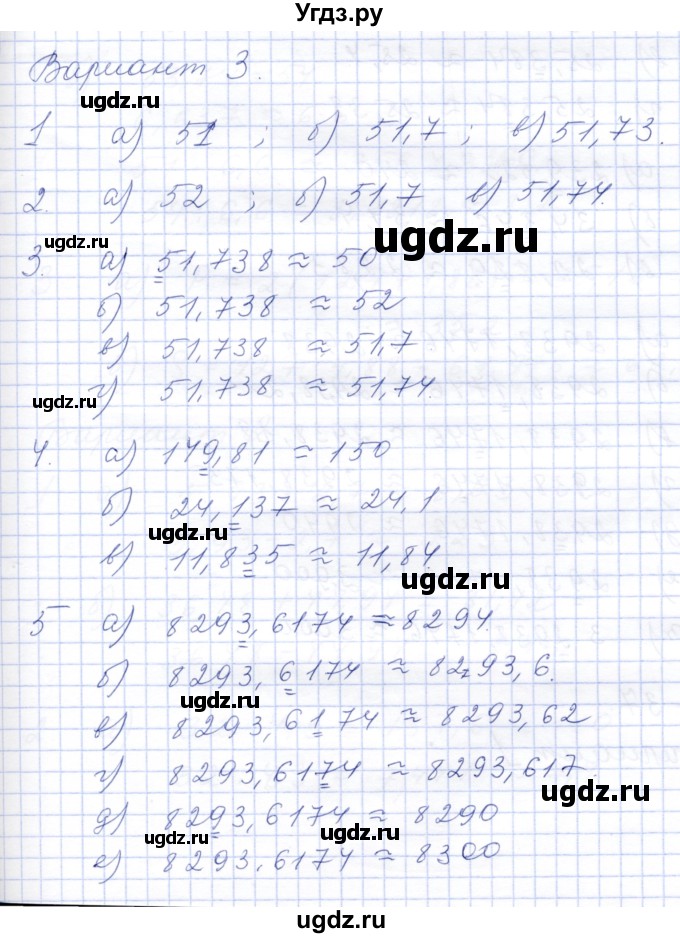 Угдз.ру
Вариант 3.
ugdz.ru
1 а) 51 ; б) 51,7 ; в) 51,73.
2. а) 52 ; б) 51,7 в) 51,74.
ugdz.ru
ugdz.ru
3. а) 51,738 ≈ 50
б) 51,738 ≈ 52
в) 51,738 ≈ 51,7
ugdz.ru
г) 51,738 ≈ 51,74.
4. а) 149,81 ≈ 150
б) 24,137 ≈ 24,1
ugdz.ru
в) 11,835 ≈ 11,84.
ugdz.ru
5 а) 8293,6174 ≈ 8294.
б) 8293,6174 ≈ 8293,6.
ugdz.ru
в) 8293,6174 ≈ 8293,62
г) 8293,6174 ≈ 8293,617.
ugdz.ru
д) 8293,6174 ≈ 8290
ugdz.ru
ugdz.ru
е) 8293,6174 ≈ 8300
ugdz.ru